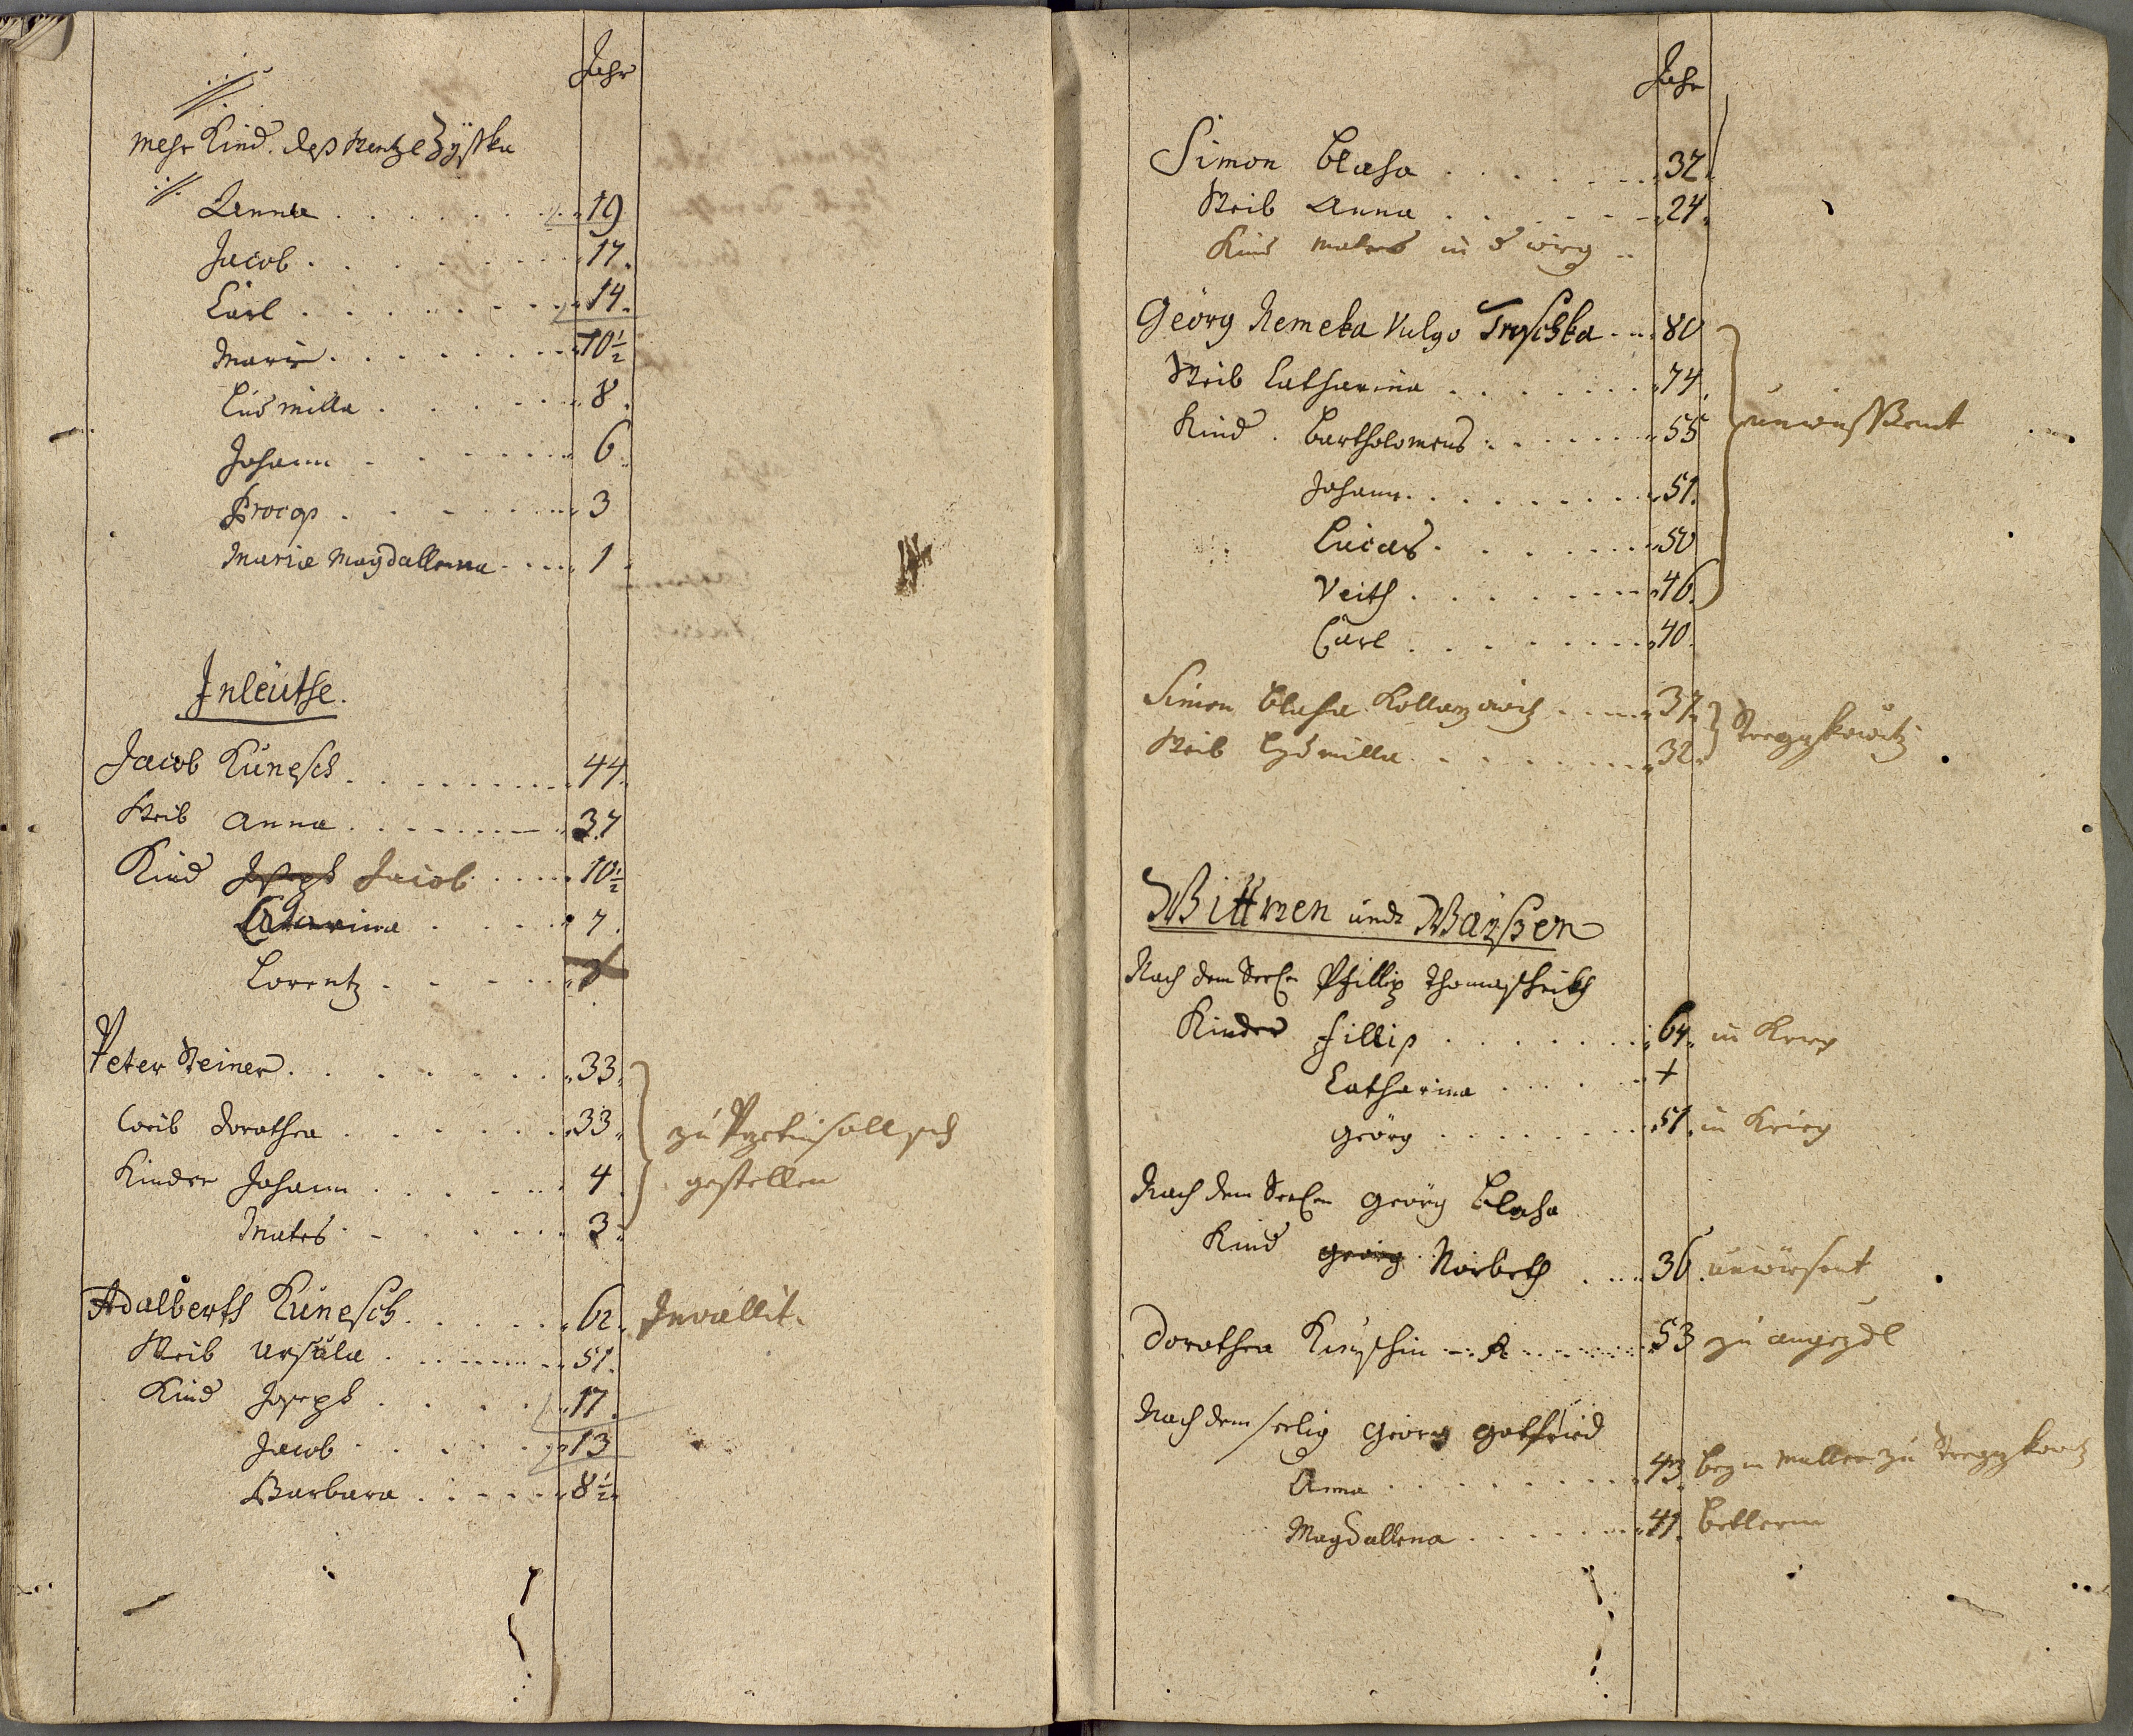 Jahr
mehr Kind. deß Wentzl Zyska
Anna 19
Jacob 17
Carl 14
Marie 10½
Ludmilla 8
Johann 6
Procop 3
Maria Magdallena 1
Inleüthe.
Jacob Kunesch 44
Weib Anna 37
Kind Joseph Jacob 10½
Catarina 7
Lorentz
Peter Steiner 33
Weib Dorothea 33
Kinder Johann 4
Mates 3
zu soll sich
gestellen
Adalberth Kunesch 62 Invallit.
Weib Ursula 51
Kind Joseph 17
Jacob 13
Barbara 8½
Jahr
Simon Blaha 32
Weib Anna 24
Kind Mates in
Georg Remeka Vulgo 80
Weib Catharina 74
Kind Bartholomeus 55
Johann 51
Lucas 50
Veith 46
Carl 40
unwissent
Simon Blaha 37
Weib Ludmilla 32
Wittwen undt Waysen
Nach dem Seel: Phillip
Kinder Fillip 64 in Krieg
Catharina +
Georg 51 in Krieg
Nach dem Seel: Georg Blaha
Kind Georg Norberth 36 unwissent
Dorothea 53 zu
Nach dem seelig Georg Gottfried
Anna 43 beym Müller zu
Magdallena 41 Betlerin